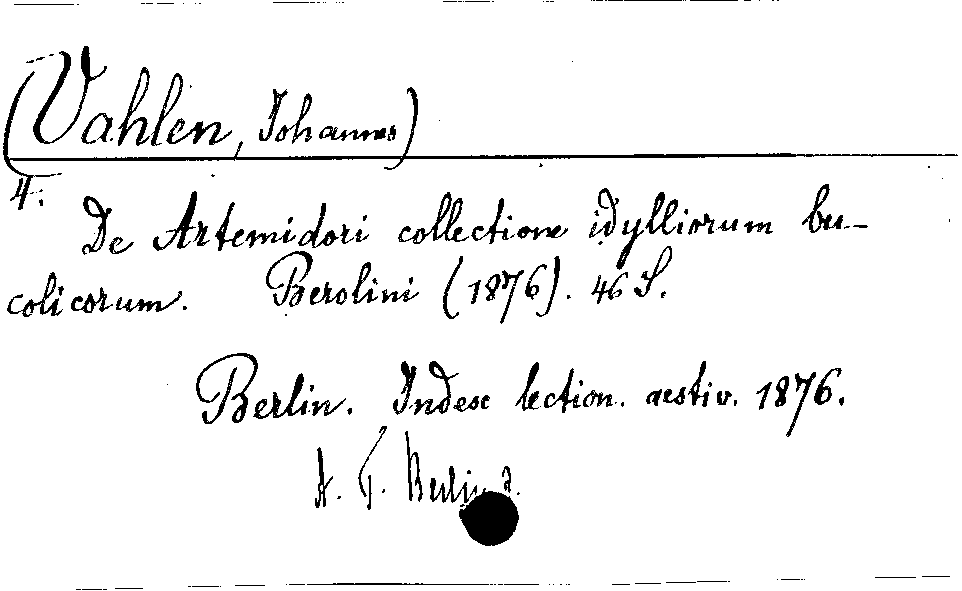 (Vahlen, Johannes)
4.
De Artemidori collectione idylliorum bu-
colicorum. Berolini (1876). 46 S.
Berlin. Index lection. aestiv. 1876.
A. F. Berlin a.